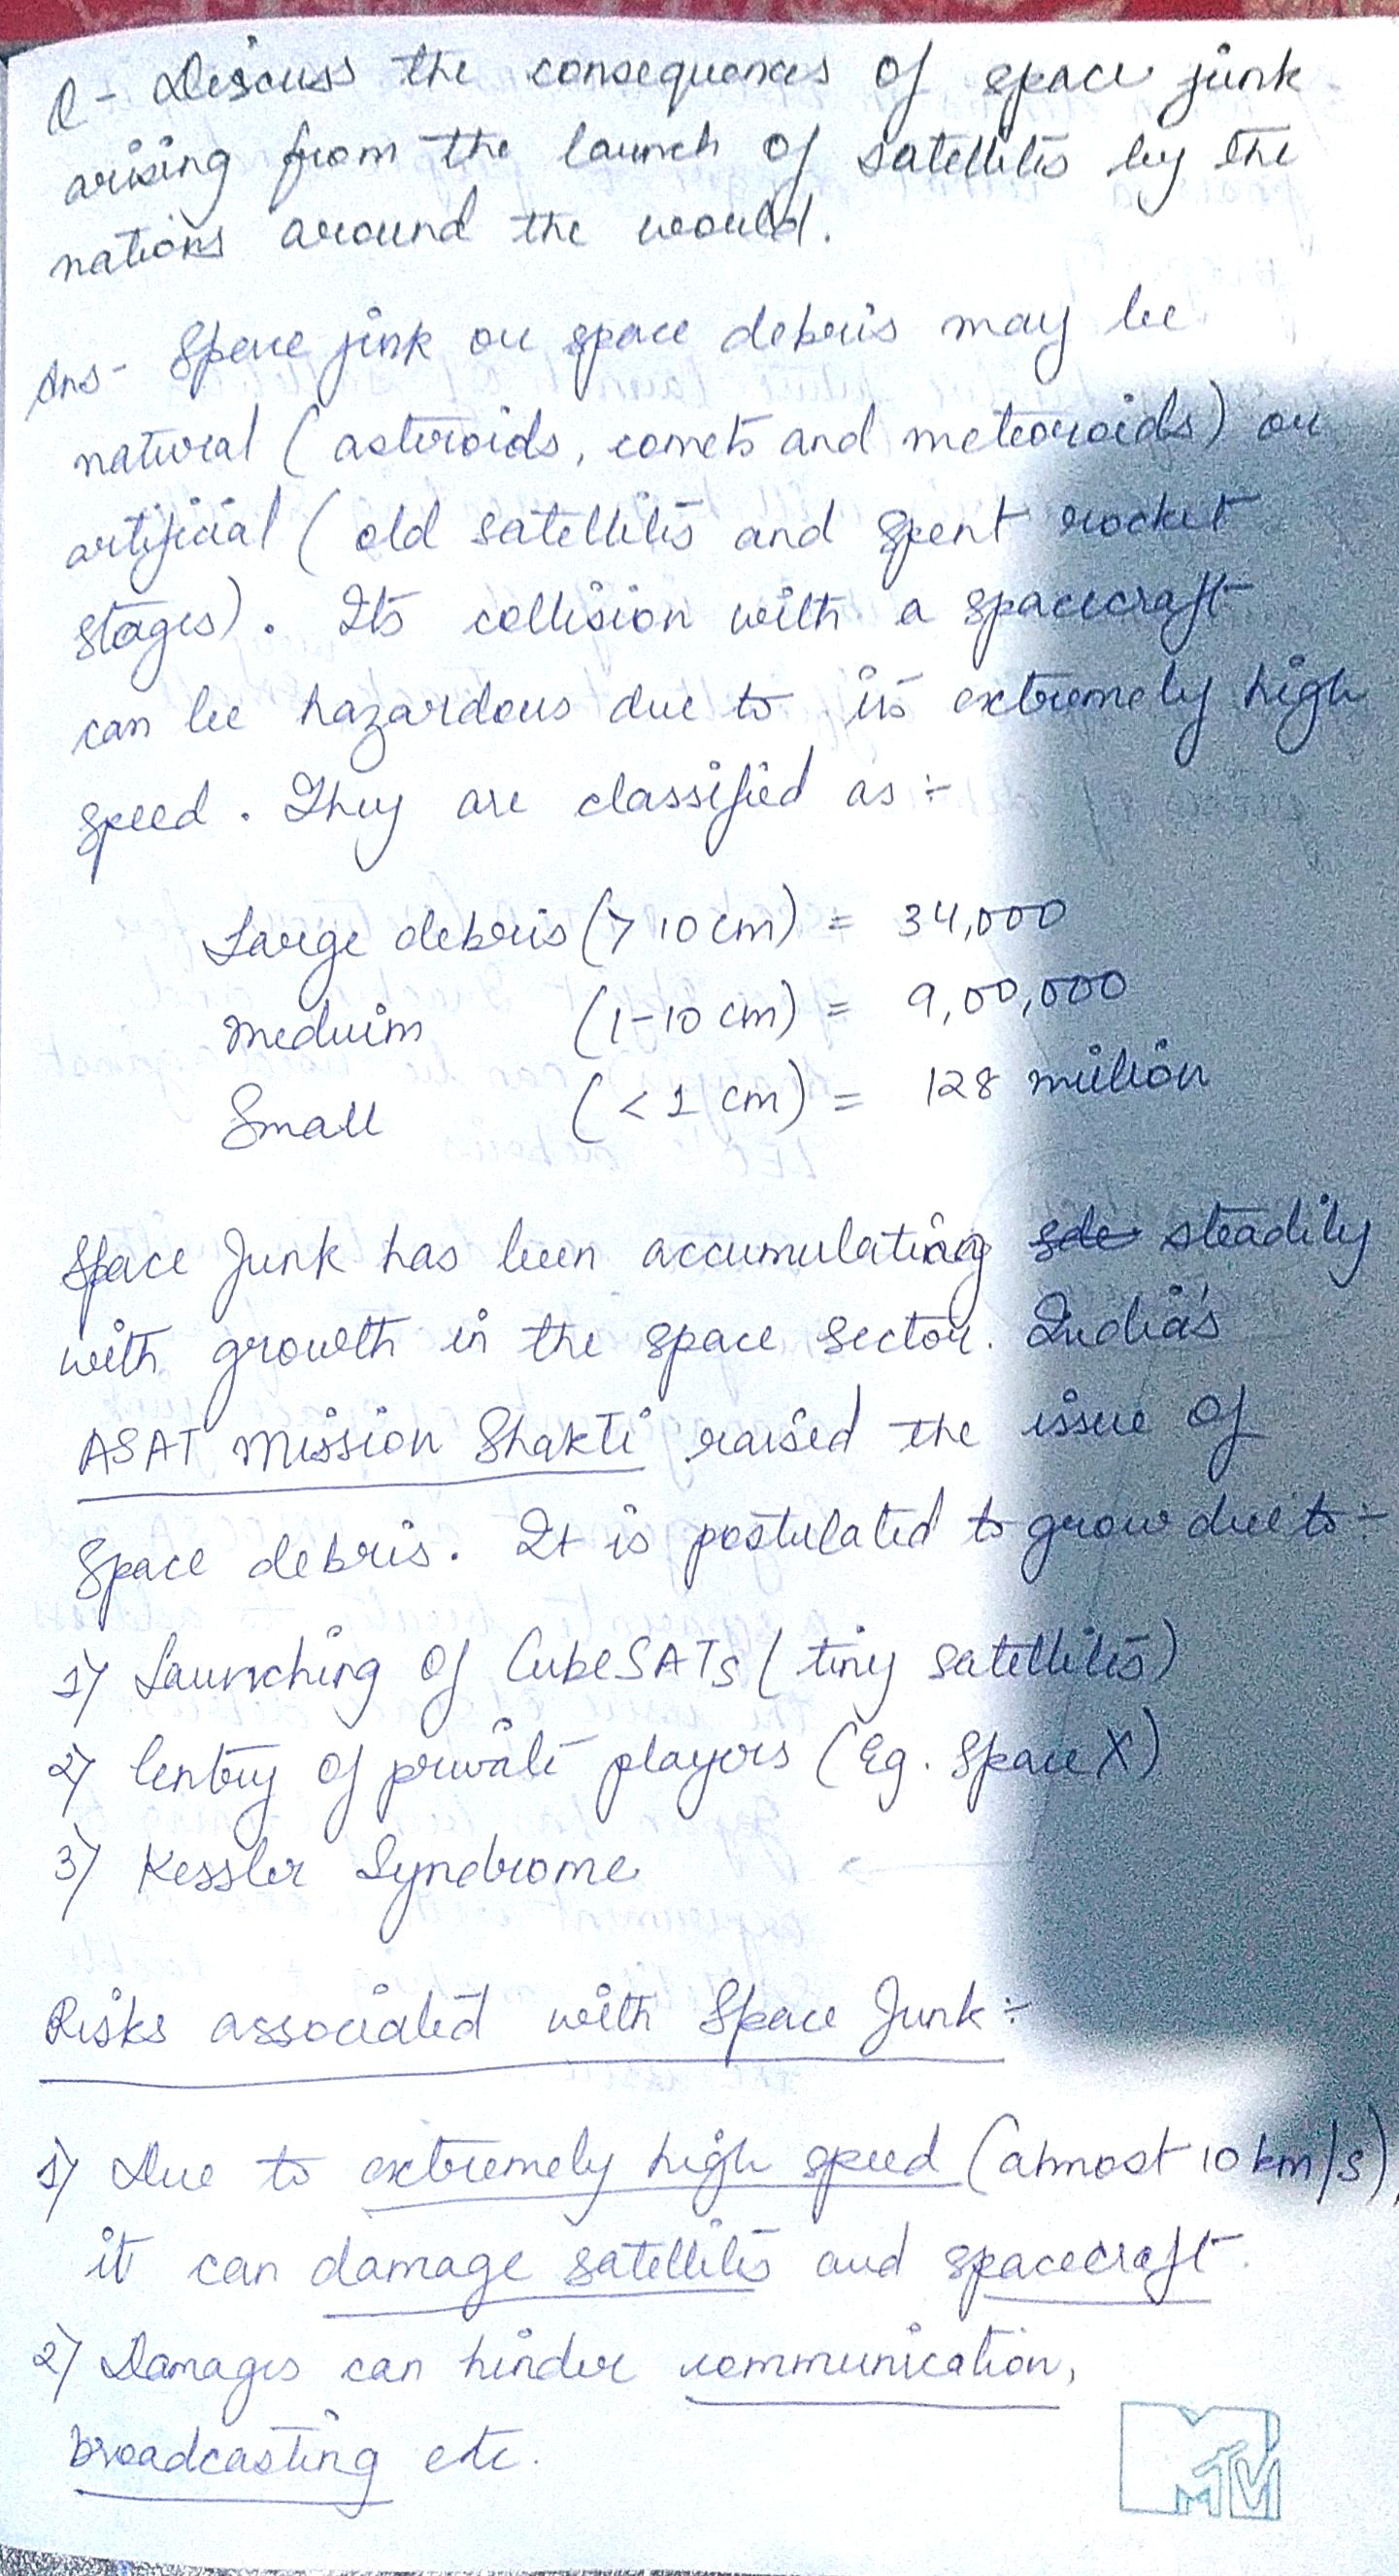 Q - Discuss the consequences of space junk
arising from the launch of satellites by the
nations around the world.
Ans - Space jink or space debris may be
natural (asteroids, comets and meteoroids) or
artificial (old satellites and spent rocket
stages). Its collision with a spacecraft
can be hazardous due to its extremely high
speed. They are classified as :-
Large debris (> 10 cm) = 34,000
Meduim (1-10 cm) = 9,00,000
Small (< 1 cm) = 128 million
Space Junk has been accumulating steadily
with growth in the space sector. India's
ASAT Mission Shakti raised the issue of
Space debris. It is postulated to grow due to :-
1) Launching of CubeSATs (tiny satellites)
2) Entry of private players (Eg. Space X)
3) Kessler Syndrome
Risks associated with Space Junk :-
1) Due to extremely high speed (almost 10 km/s),
it can damage satellites and spacecraft.
2) Damages can hinder communication,
broadcasting etc.
MTV